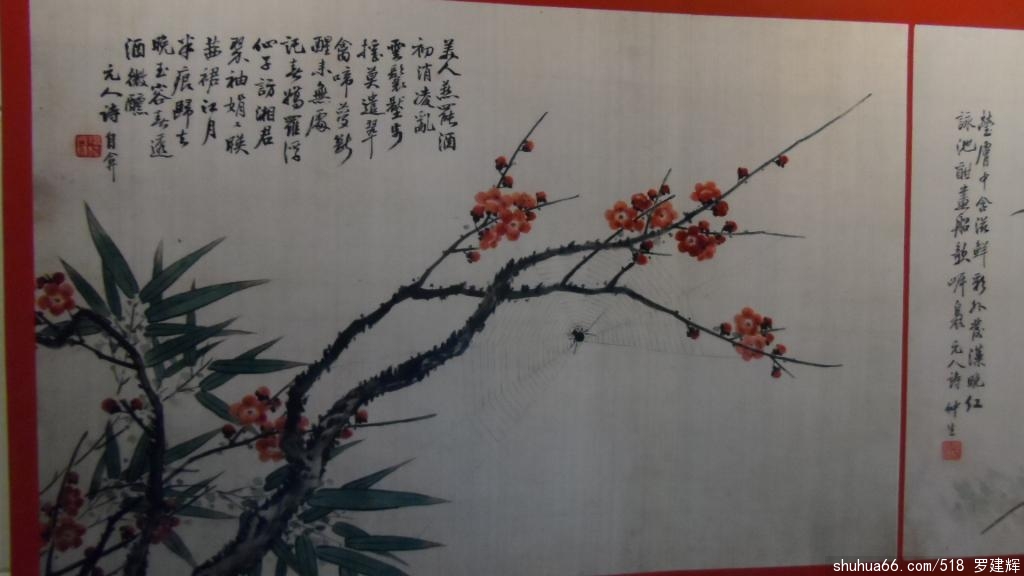 美人燕罷酒
初消凌亂
雲鬟壓步
搖莫遣翠
禽啼夢斷
醒來無處
託春嬌羅浮
仙子訪湘君
翠袖娟〻暎
茜裙江月
半痕歸去
晚玉容春透
酒微醺
元人詩 自弇
瑩膚中含滋鮮彩外發漢晚紅
詠池酣畫船歌呼 元人詩 仲生
shuhua66.com/518 罗建辉